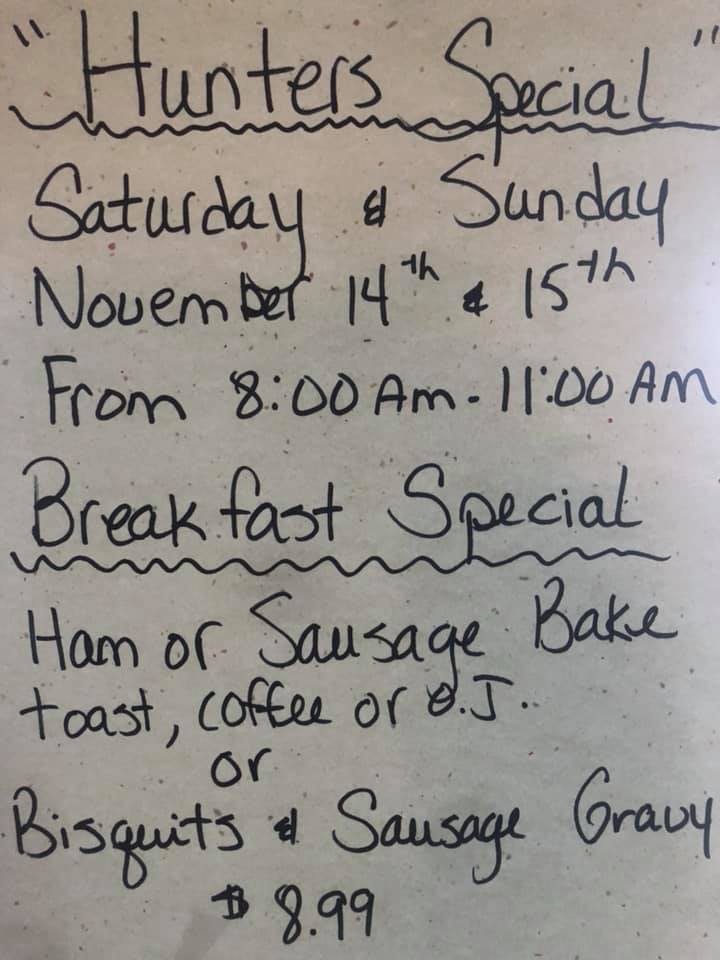 "Hunters Special"
Saturday & Sunday
November 14th & 15th
From 8:00 Am - 11:00 AM
Breakfast Special
Ham or Sausage Bake
toast, coffee or O.J.
or
Bisquits & Sausage Gravy
$8.99